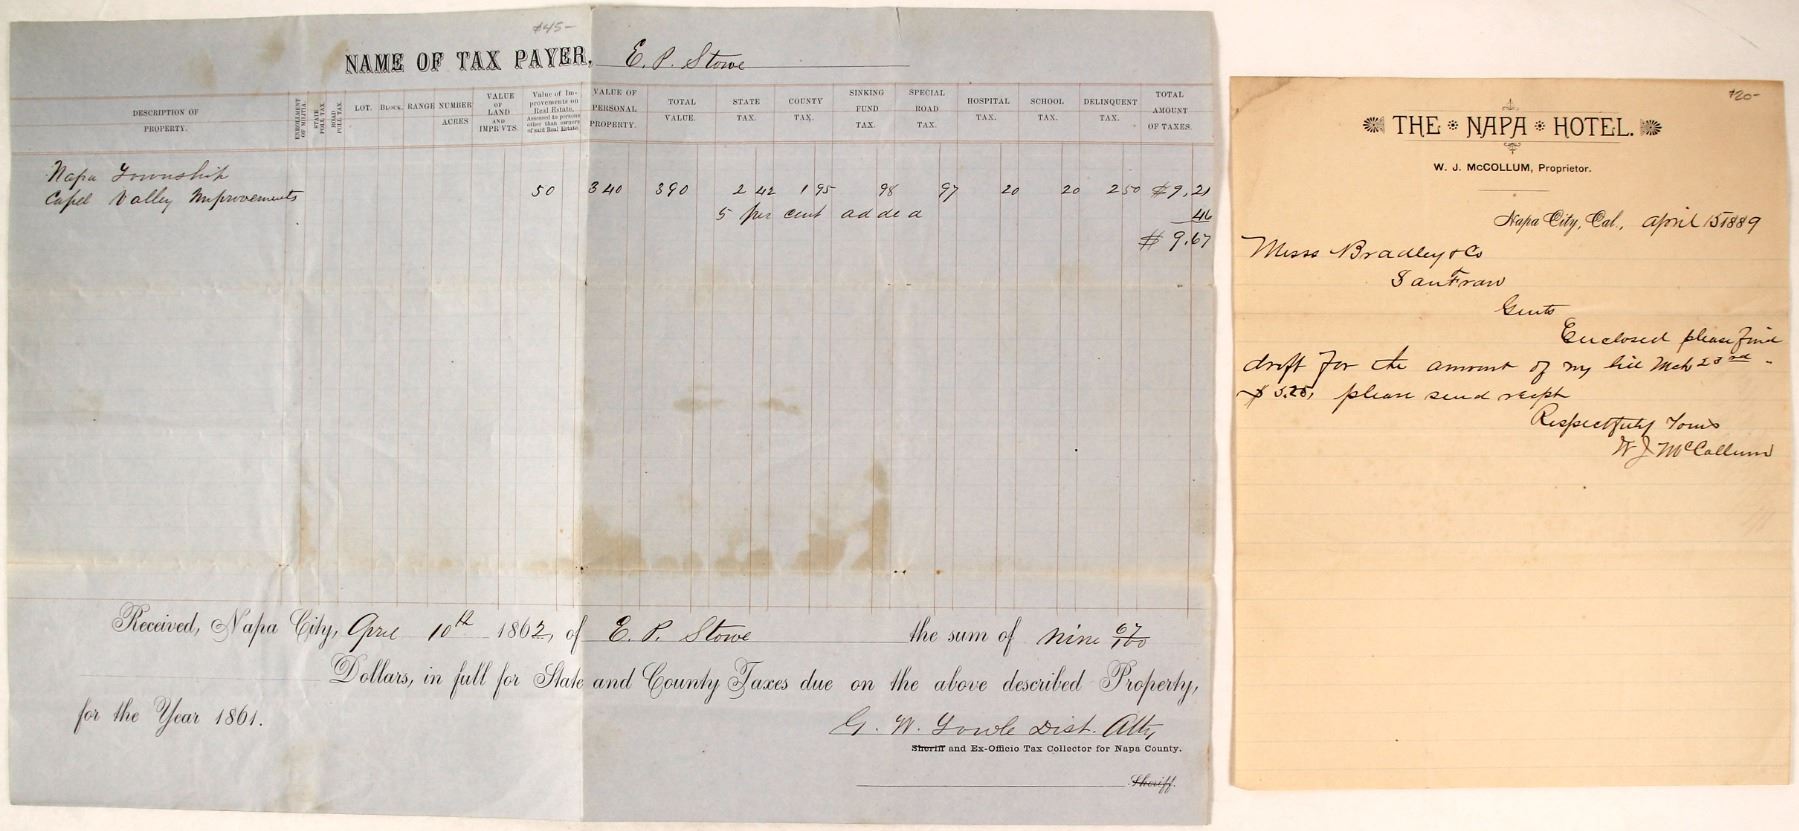 $45-
NAME OF TAX PAYER, E. P. Stowe
DESCRIPTION OF PROPERTY.
ENROLLMENT OF MILITIA.
STATE POLL TAX
ROAD POLL TAX
LOT.
BLOCK.
RANGE
NUMBER ACRES
VALUE OF LAND AND IMPR'VTS.
Value of Improvements on Real Estate, Assessed to persons other than owners of said Real Estate
VALUE OF PERSONAL PROPERTY.
TOTAL VALUE.
STATE TAX.
COUNTY TAX.
SINKING FUND TAX.
SPECIAL ROAD TAX.
HOSPITAL TAX.
SCHOOL TAX.
DELINQUENT TAX.
TOTAL AMOUNT OF TAXES.
Napa Township
Capel Valley Improvements 50 340 390 2 42 1 95 98 97 20 20 2 50 $9,21
5 per cent added 46
$9.67
Received, Napa City, April 10th 1862, of E. P. Stowe the sum of nine 67/100
Dollars, in full for State and County Taxes due on the above described Property,
for the Year 1861.
G. W. Towle Dist. Atty
Sheriff and Ex-Officio Tax Collector for Napa County.
Sheriff.
$20-
THE NAPA HOTEL.
W. J. McCOLLUM, Proprietor.
Napa City, Cal., April 15 1889
Messs Bradley & Co
San Fran
Gents
Enclosed please find
draft for the amount of my bill Mch 23rd -
$5.25, please send recipt
Respectfuly Yours
W J McCollum